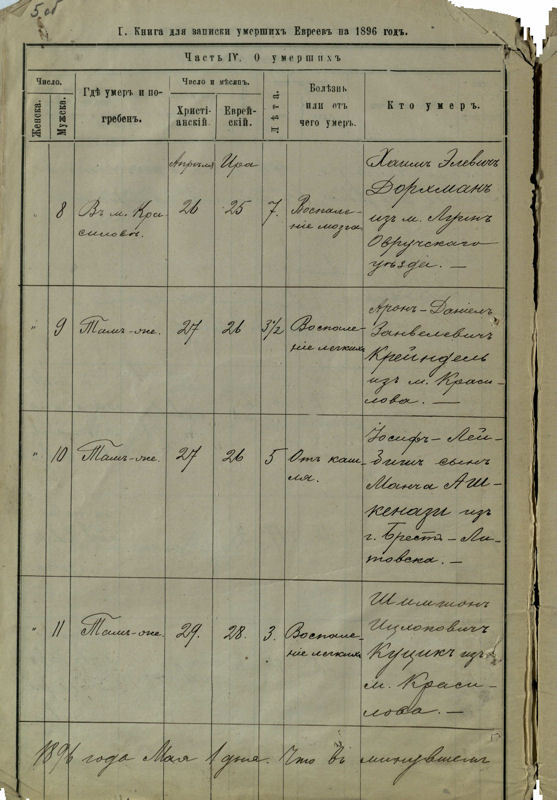 5 об
I. Книга для записки умершихъ Евреевъ на 1896 годъ.
Часть IV. О умершихъ
Число.
Женска.
Мужска.
Гдѣ умеръ и по-
гребенъ.
Число и мѣсяцъ.
Христі-
анскій.
Еврей-
скій.
Лѣта.
Болѣзнь
или отъ
чего умеръ.
Кто умеръ.
Апрѣля Ира
" 8
Въ м. Кра-
силовѣ.
26
25
7.
Воспале-
ніе мозга
Хаимъ Элевичъ
Дорхманъ
изъ м. Лугинъ
Овручскаго
уѣзда. —
" 9
Тамъ-же.
27
26
3 1/2
Воспале-
ніе легкихъ
Аронъ-Даніель
Занвелевичъ
Крейндель
изъ м. Краси-
лова. —
" 10
Тамъ-же.
27
26
5
Отъ каш-
ля.
Іосифъ-Лей-
сынъ
Аш-
кенази изъ
г. Брестъ-Ли-
товска. —
" 11
Тамъ-же.
29.
28.
3.
Воспале-
ніе легкихъ
Шимшонъ
Ицковичъ
Куцикъ изъ
м. Краси-
лова. —
1896 года Мая 1 дня. Что въ минувшемъ